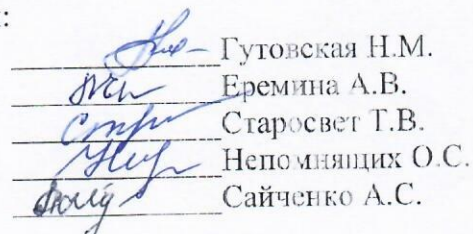 :
Гутовская Н.М.
Еремина А.В.
Старосвет Т.В.
Непомнящих О.С.
Сайченко А.С.